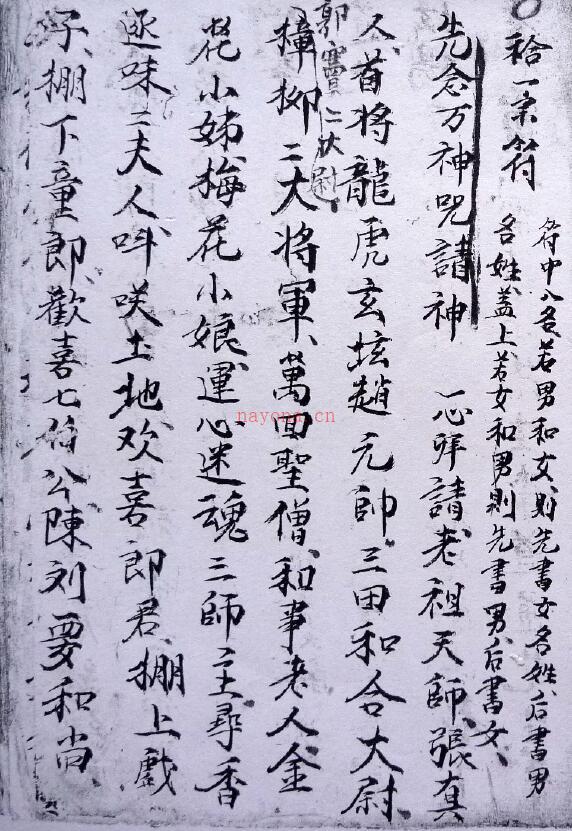 祫一宗符
符中人名若男和女则先書女名姓后書男
名姓盖上若女和男则先書男后書女
先念万神咒請神　一心拜請老祖天師張真
人首将龍虎玄坛趙元帥三田和合大尉
郭竇二伏尉
撵柳二大将軍萬回聖僧和事老人金
花小姊梅花小娘運心迷魂三師主尋香
逐味二夫人呌咲土地欢喜郎君棚上戲
子棚下童郎歡喜七伯公陳刘要和尚
nayona.cn